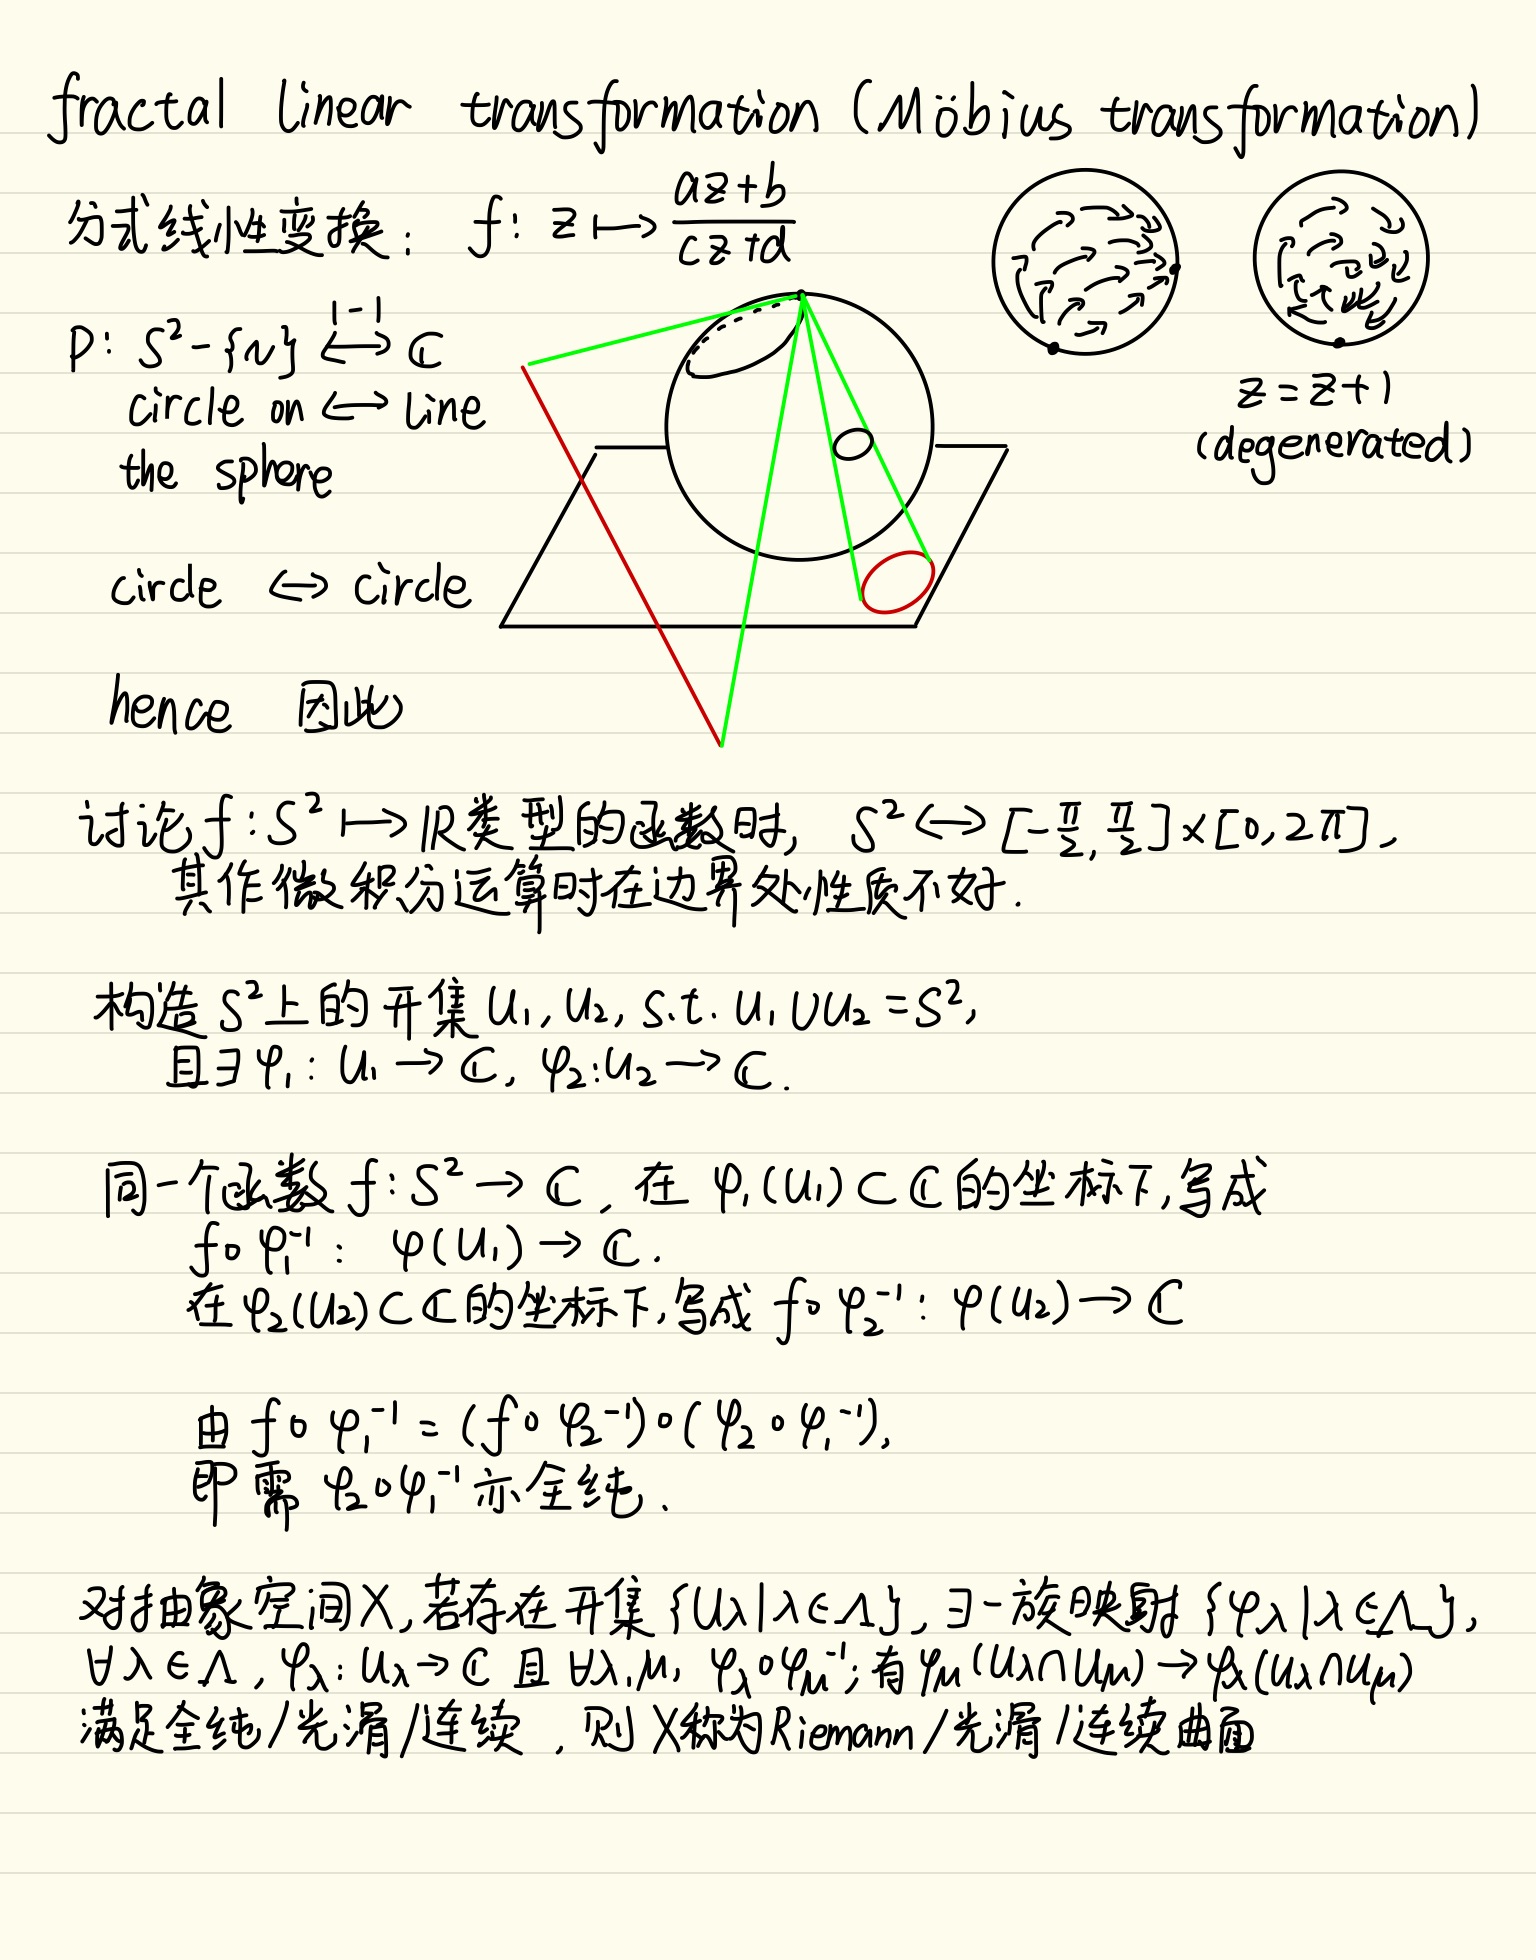 fractal linear transformation (Möbius transformation)
分式线性变换: f: z ↦ (az+b)/(cz+d)
P: S²-{N} ⟷ ℂ
1-1
circle on ⟷ line
the sphere
z = z+1
(degenerated)
circle ⟷ circle
hence 因此
讨论 f: S² ↦ ℝ 类型的函数时, S² ⟷ [-π/2, π/2]×[0, 2π],
其作微积分运算时在边界处性质不好.
构造 S² 上的开集 U₁, U₂, s.t. U₁∪U₂ = S²,
且∃ φ₁: U₁ → ℂ, φ₂: U₂ → ℂ.
同一个函数 f: S² → ℂ, 在 φ₁(U₁) ⊂ ℂ 的坐标下, 写成
f∘φ₁⁻¹: φ(U₁) → ℂ.
在 φ₂(U₂) ⊂ ℂ 的坐标下, 写成 f∘φ₂⁻¹: φ(U₂) → ℂ
由 f∘φ₁⁻¹ = (f∘φ₂⁻¹)∘(φ₂∘φ₁⁻¹),
即需 φ₂∘φ₁⁻¹ 亦全纯.
对抽象空间X, 若存在开集 {U_λ|λ∈Λ}, ∃一族映射 {φ_λ|λ∈Λ},
∀λ∈Λ, φ_λ: U_λ → ℂ 且 ∀λ,μ, φ_λ∘φ_μ⁻¹; 有 φ_μ(U_λ∩U_μ) → φ_λ(U_λ∩U_μ)
满足全纯/光滑/连续, 则 X称为Riemann/光滑/连续曲面